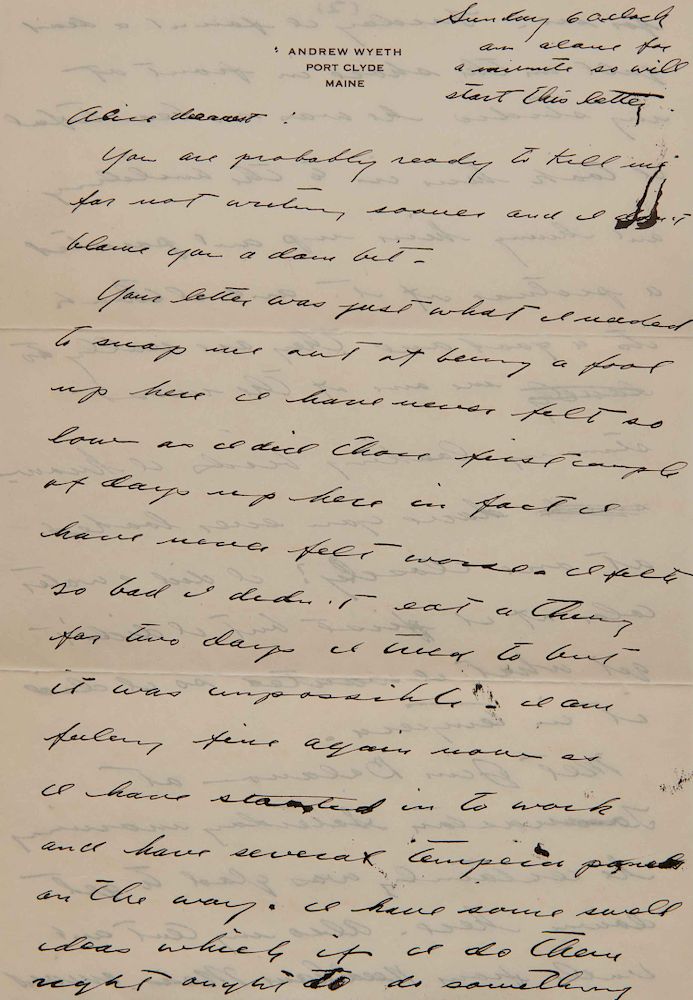 Sunday 6 oclock
am alone for
a minute so will
start this letter.
ANDREW WYETH
PORT CLYDE
MAINE
Alice dearest :
You are probably ready to kill me
for not writing sooner and I don't
blame you a dam bit.
Your letter was just what I needed
to snap me out of being a fool
up here I have never felt so
low as I did those first couple
of days up here in fact I
have never felt worse. I felt
so bad I didn't eat a thing
for two days I tried to but
it was impossible. I am
feeling fine again now as
I have started in to work
and have several tempera panels
on the way. I have some swell
ideas which if I do them
right ought to do something